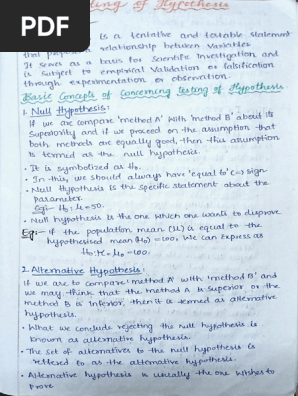 PDF
Testing of Hypothesis
is a tentative and testable statement
that relationship between variables
It serves as a basis for scientific Investigation and
is subject to empirical validation or falsification
through experimentation or observation.
Basic Concepts of Concerning testing of Hypothesis
1. Null Hypothesis:
If we are compare 'method A' with 'method B' about its
superiority and if we proceed on the assumption that
both methods are equally good, then this assumption
is termed as the null hypothesis.
• It is symbolized as H₀.
• In this, we should always have 'equal to' (=) sign.
• Null Hypothesis is the specific statement about the
parameter.
Eg:- H₀: μ=50.
• Null hypothesis is the one which one wants to disprove.
Eg:- if the population mean (μ) is equal to the
hypothesised mean (μ₀) = 100, we can express as
H₀: μ = μ₀ = 100.
2. Alternative Hypothesis:
If we are to compare 'method A' with 'method B' and
we may think that the method A is superior or the
method B is inferior, then it is termed as alternative
hypothesis.
• What we conclude rejecting the null hypothesis is
known as alternative hypothesis.
• The set of alternatives to the null hypothesis is
reffered to as the alternative hypothesis.
• Alternative hypothesis is usually the one wishes to
prove